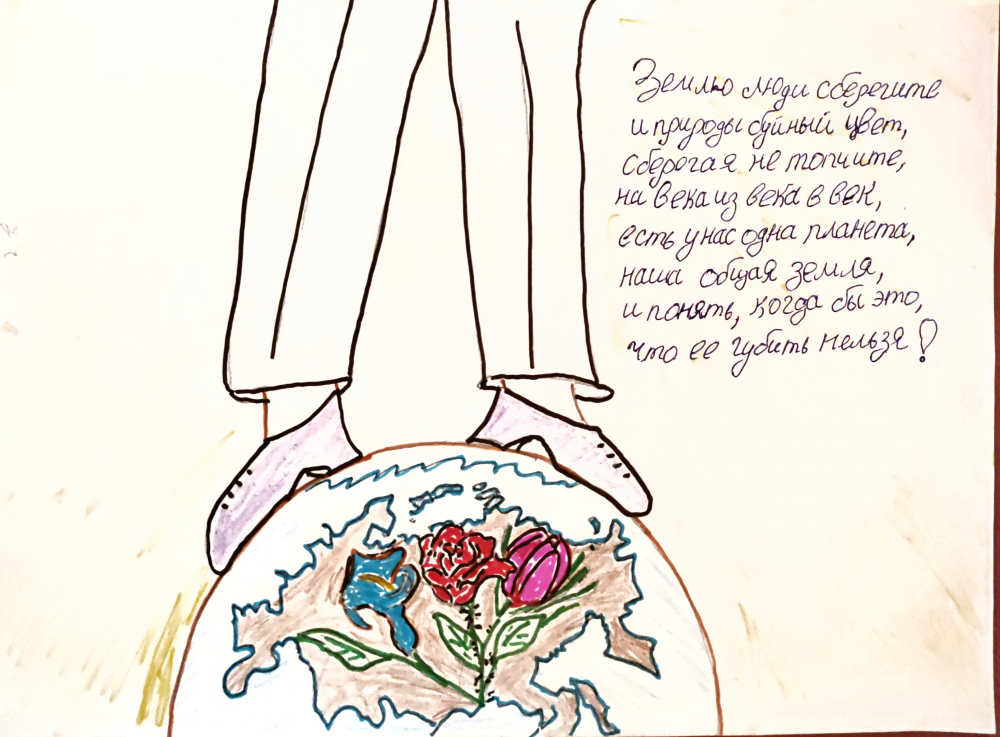 Землю люди сберегите
и природы буйный цвет,
сберегая не топчите,
на века из века в век,
есть у нас одна планета,
наша общая земля,
и понять, когда бы это,
что ее губить нельзя!